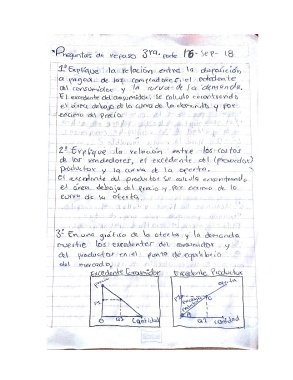 *Preguntas de repaso 3ra. parte 18-Sep-18
1º Explique la relación entre la disposición
a pagar de los compradores, el excedente
del consumidor y la curva de la demanda.
El excedente del consumidor se calcula encontrando
el área debajo de la curva de la demanda y por
encima del precio.
2º Explique la relación entre los costos
de los vendedores, el excedente del (provedor)
productor y la curva de la oferta.
El excedente del productor se calcula encontrando
el área debajo del precio y por encima de la
curva de la oferta.
3º En una gráfica de la oferta y la demanda
muestre los excedentes del consumidor y
del productor en el punto de equilibrio
del mercado.
Excedente Consumidor Excedente Productor
Precio
P1
0 Q1 Cantidad
Q1 Cantidad